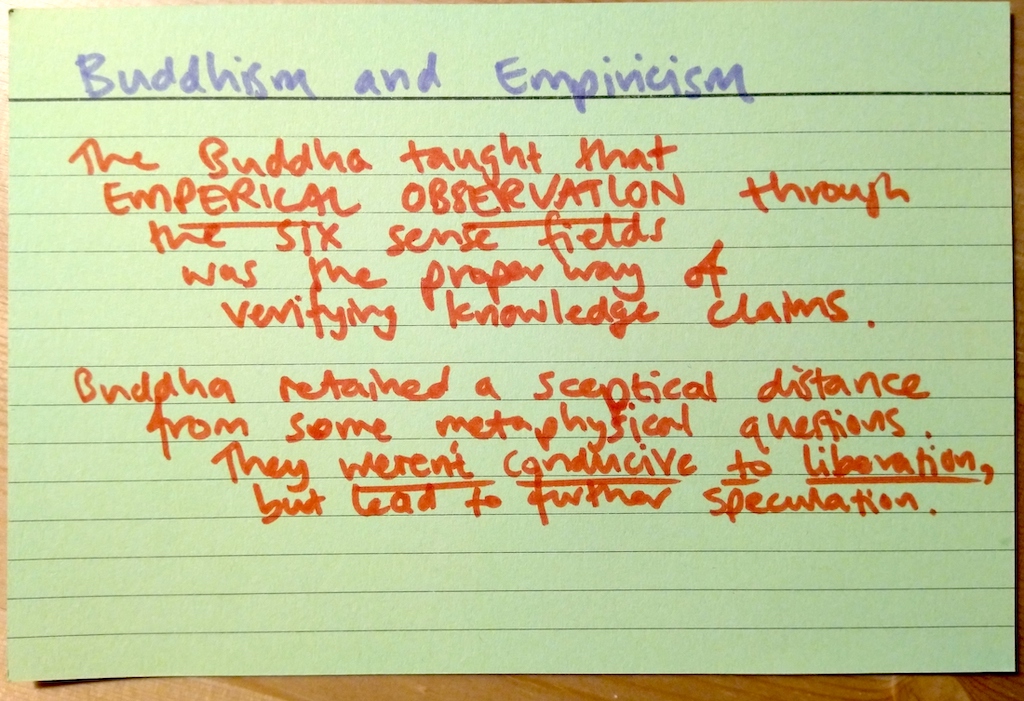 Buddhism and Empiricism
The Buddha taught that
EMPERICAL OBSERVATION through
the six sense fields
was the proper way of
verifying knowledge claims.
Buddha retained a sceptical distance
from some metaphysical questions.
They werent conducive to liberation,
but lead to further speculation.